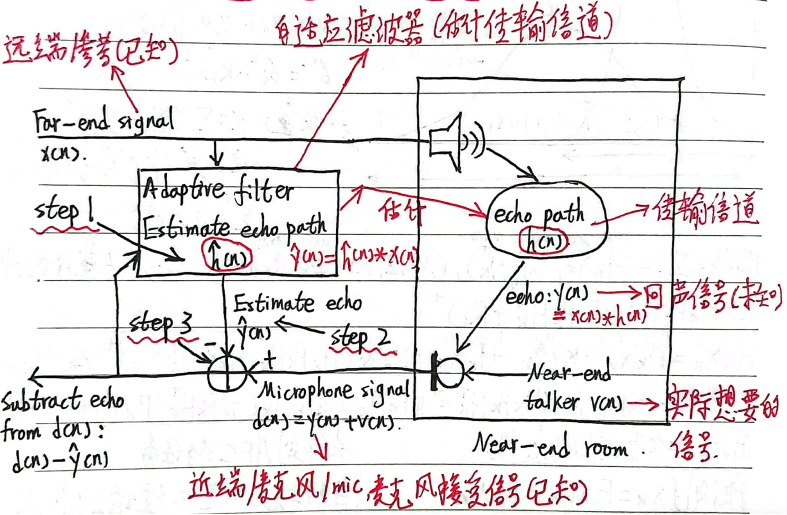 自适应滤波器(估计传输信道)
远端/参考(已知)
Far-end signal
x(n).
Adaptive filter
Estimate echo path
ĥ(n)
ŷ(n)=ĥ(n)*x(n)
step 1
估计
echo path
h(n)
传输信道
echo: y(n)
= x(n)*h(n)
回声信号(未知)
Estimate echo
ŷ(n)
step 2
step 3
-
+
Subtract echo
from d(n):
d(n)-ŷ(n)
Microphone signal
d(n)=y(n)+v(n).
Near-end
talker v(n)
实际想要的
信号.
Near-end room.
近端/麦克风/mic,麦克风接受信号(已知)